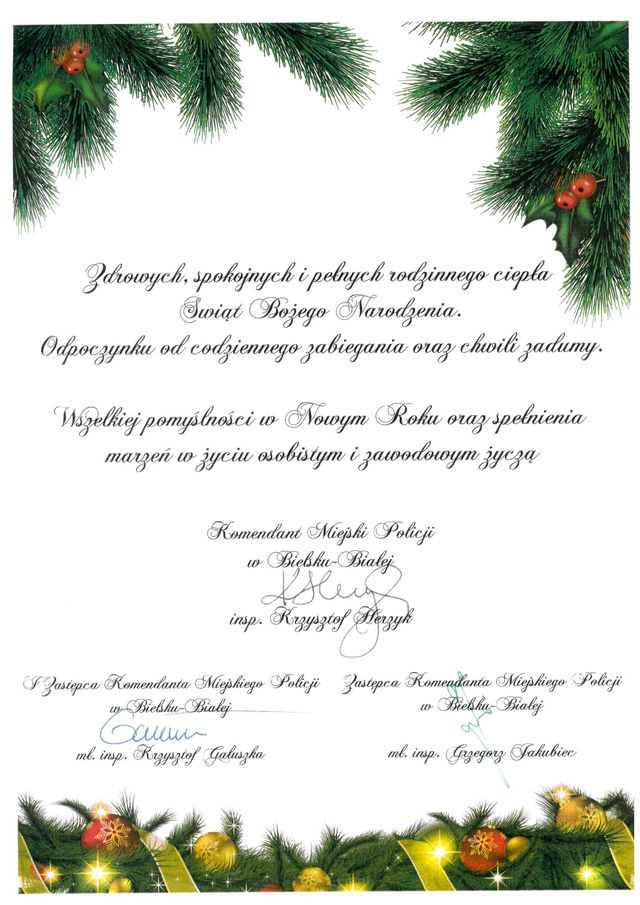 Zdrowych, spokojnych i pełnych rodzinnego ciepła
Świąt Bożego Narodzenia.
Odpoczynku od codziennego zabiegania oraz chwili zadumy.
Wszelkiej pomyślności w Nowym Roku oraz spełnienia
marzeń w życiu osobistym i zawodowym życzą
Komendant Miejski Policji
w Bielsku-Białej
insp. Krzysztof Herzyk
I Zastępca Komendanta Miejskiego Policji
w Bielsku-Białej
mł. insp. Krzysztof Gałuszka
Zastępca Komendanta Miejskiego Policji
w Bielsku-Białej
mł. insp. Grzegorz Jakubiec